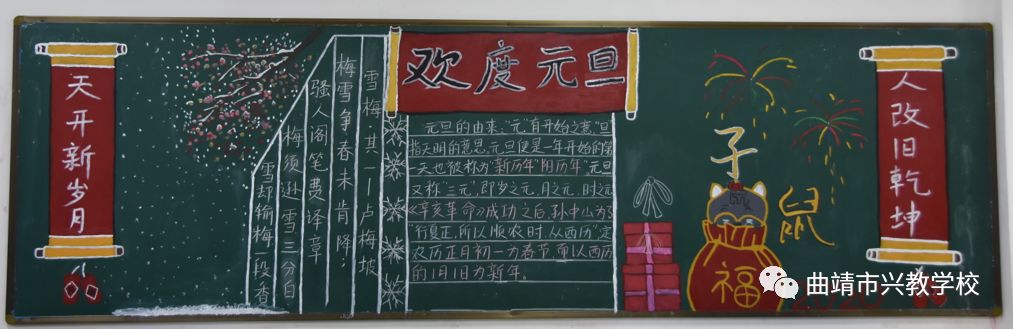 天开新岁月
雪梅 其一 卢梅坡
梅雪争春未肯降；
骚人阁笔费译章
梅须逊雪三分白
雪却输梅一段香
欢度元旦
元旦的由来："元"有开始之意，"旦"
指天明的意思。元旦便是一年开始的第
一天也被称为"新历年""阳历年"。元旦
又称"三元"，即岁之元、月之元、时之元
《辛亥革命》成功之后，孙中山为了
"行夏正，所以顺农时，从西历"定
农历正月初一为春节，而以西历
的1月1日为新年。
子
鼠
福
人改旧乾坤
曲靖市兴教学校